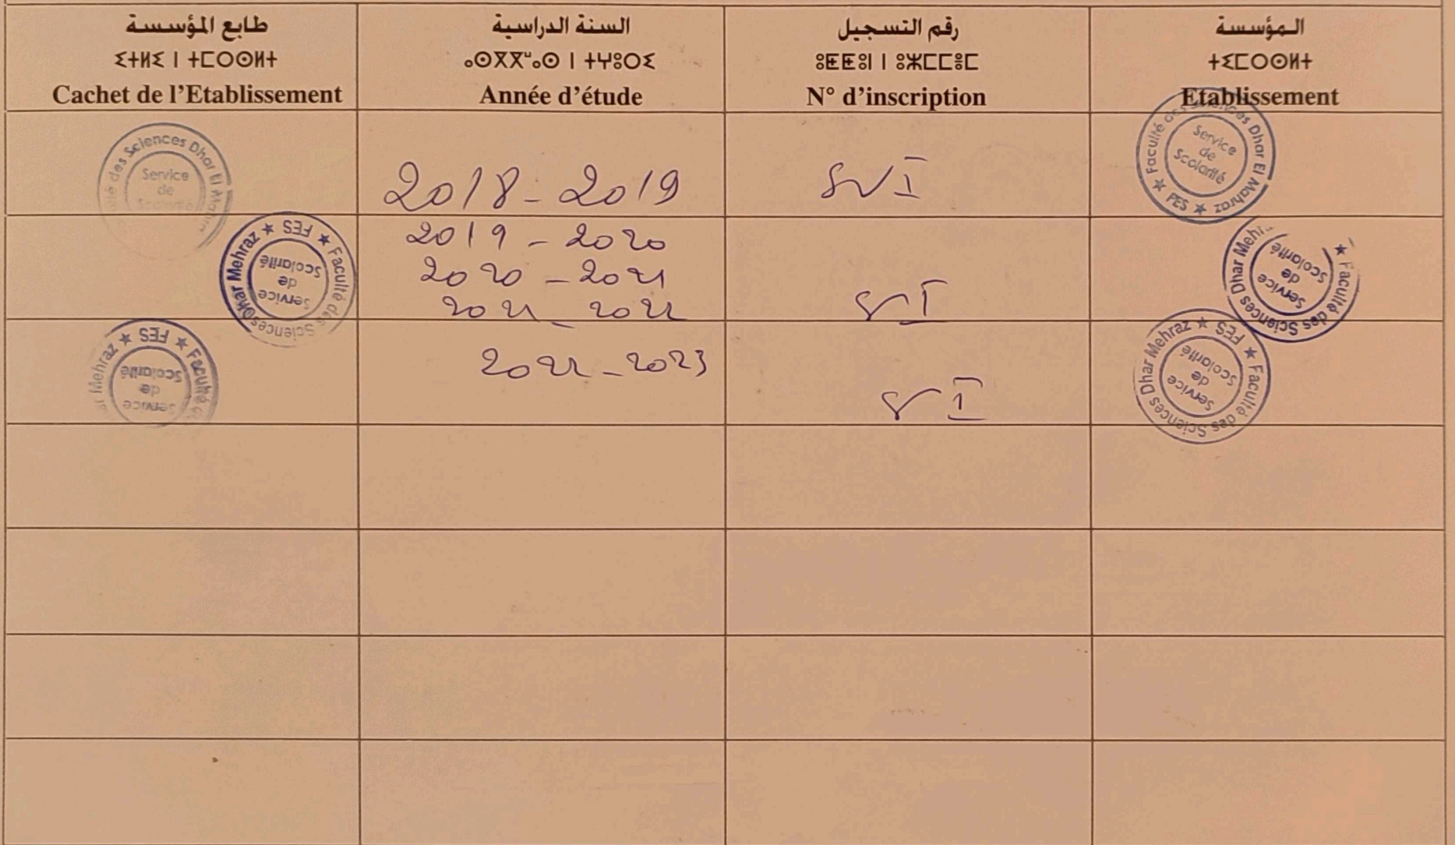 طابع المؤسسة
ⵉⵜⵍⵉ ⵏ ⵜⵎⵔⵙⵍⵜ
Cachet de l'Etablissement
السنة الدراسية
ⴰⵙⴳⴳⵯⴰⵙ ⵏ ⵜⵖⵓⵔⵉ
Année d'étude
رقم التسجيل
ⵓⵟⵟⵓⵏ ⵏ ⵓⵣⵎⵎⵓⵎ
N° d'inscription
المؤسسة
ⵜⵉⵎⵔⵙⵍⵜ
Etablissement
des Sciences Dhar El
Service
de
2018-2019
SVI
Faculté des Sciences Dhar El Mahraz ★ FES ★
Service
de
Scolarité
Faculté des Sciences Dhar Mehraz ★ FES ★
Service
de
Scolarité
2019-2020
2020-2021
2021-2022
SVI
★ Faculté des Sciences Dhar
Service
de
Scolarité
Mehraz ★ FES ★
Service
de
Scolarité
2022-2023
SVI
Faculté des Sciences Dhar Mehraz ★ FES ★
Service
de
Scolarité